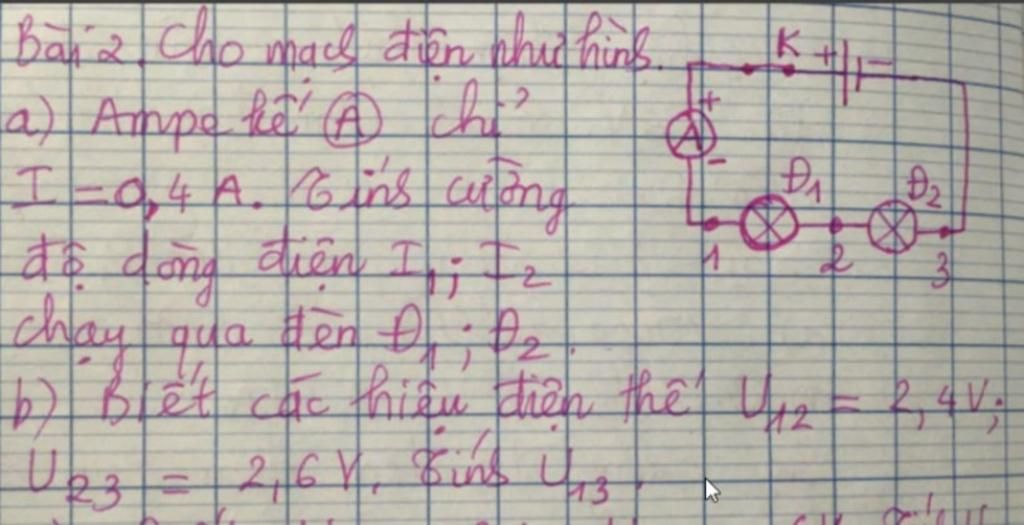 Bài 2. Cho mạch điện như hình.
a) Ampe kế (A) chỉ
I = 0,4 A. Tính cường
độ dòng điện I1; I2
chạy qua đèn Đ1; Đ2.
b) Biết các hiệu điện thế U12 = 2,4V;
U23 = 2,6 V. Tính U13.
K + -
+
A
-
Đ1 Đ2
1 2 3